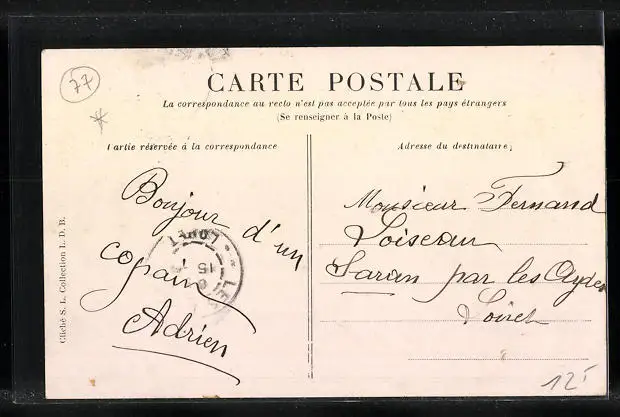 77
CARTE POSTALE
La correspondance au recto n'est pas acceptée par tous les pays étrangers
(Se renseigner à la Poste)
Partie réservée à la correspondance
Adresse du destinataire
Bonjour d'un
copain
Adrien
Monsieur Fernand
Loiseau
Saran par les Aydes
Loiret
LOIRET
15
Cliché S. L. Collection L. D. B.
12